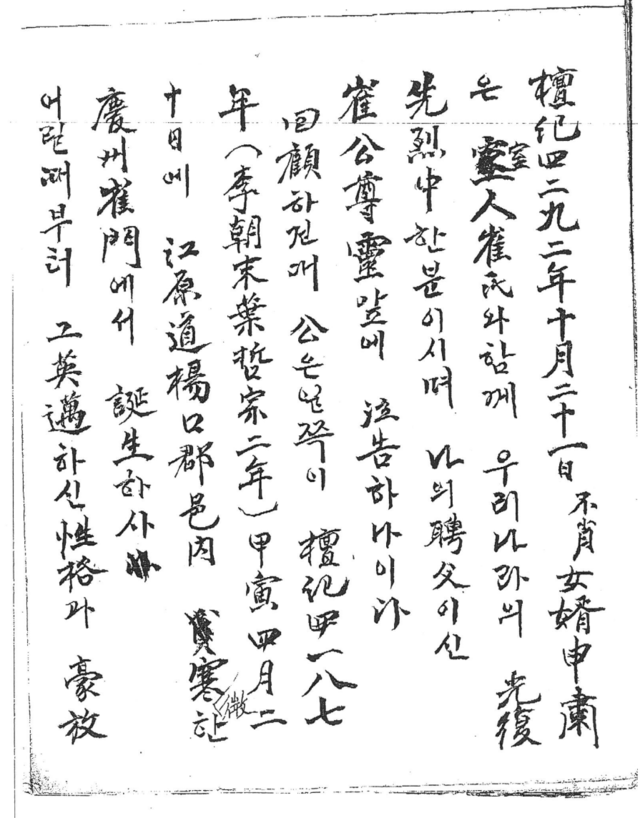 檀紀四二九二年十月二十一日 不肖女婿申肅
은 室人崔氏와함께 우리나라의 光復
先烈中한분이시며 나의聘父이신
崔公尊靈앞에 泣告하나이다
回顧하건대 公은일쯕이 檀紀四一八七
年(李朝末葉哲宗二年)甲寅四月二
十日에 江原道楊口郡邑內 寒微한
慶州崔門에서 誕生하사
어릴때부터 그英邁하신性格과 豪放